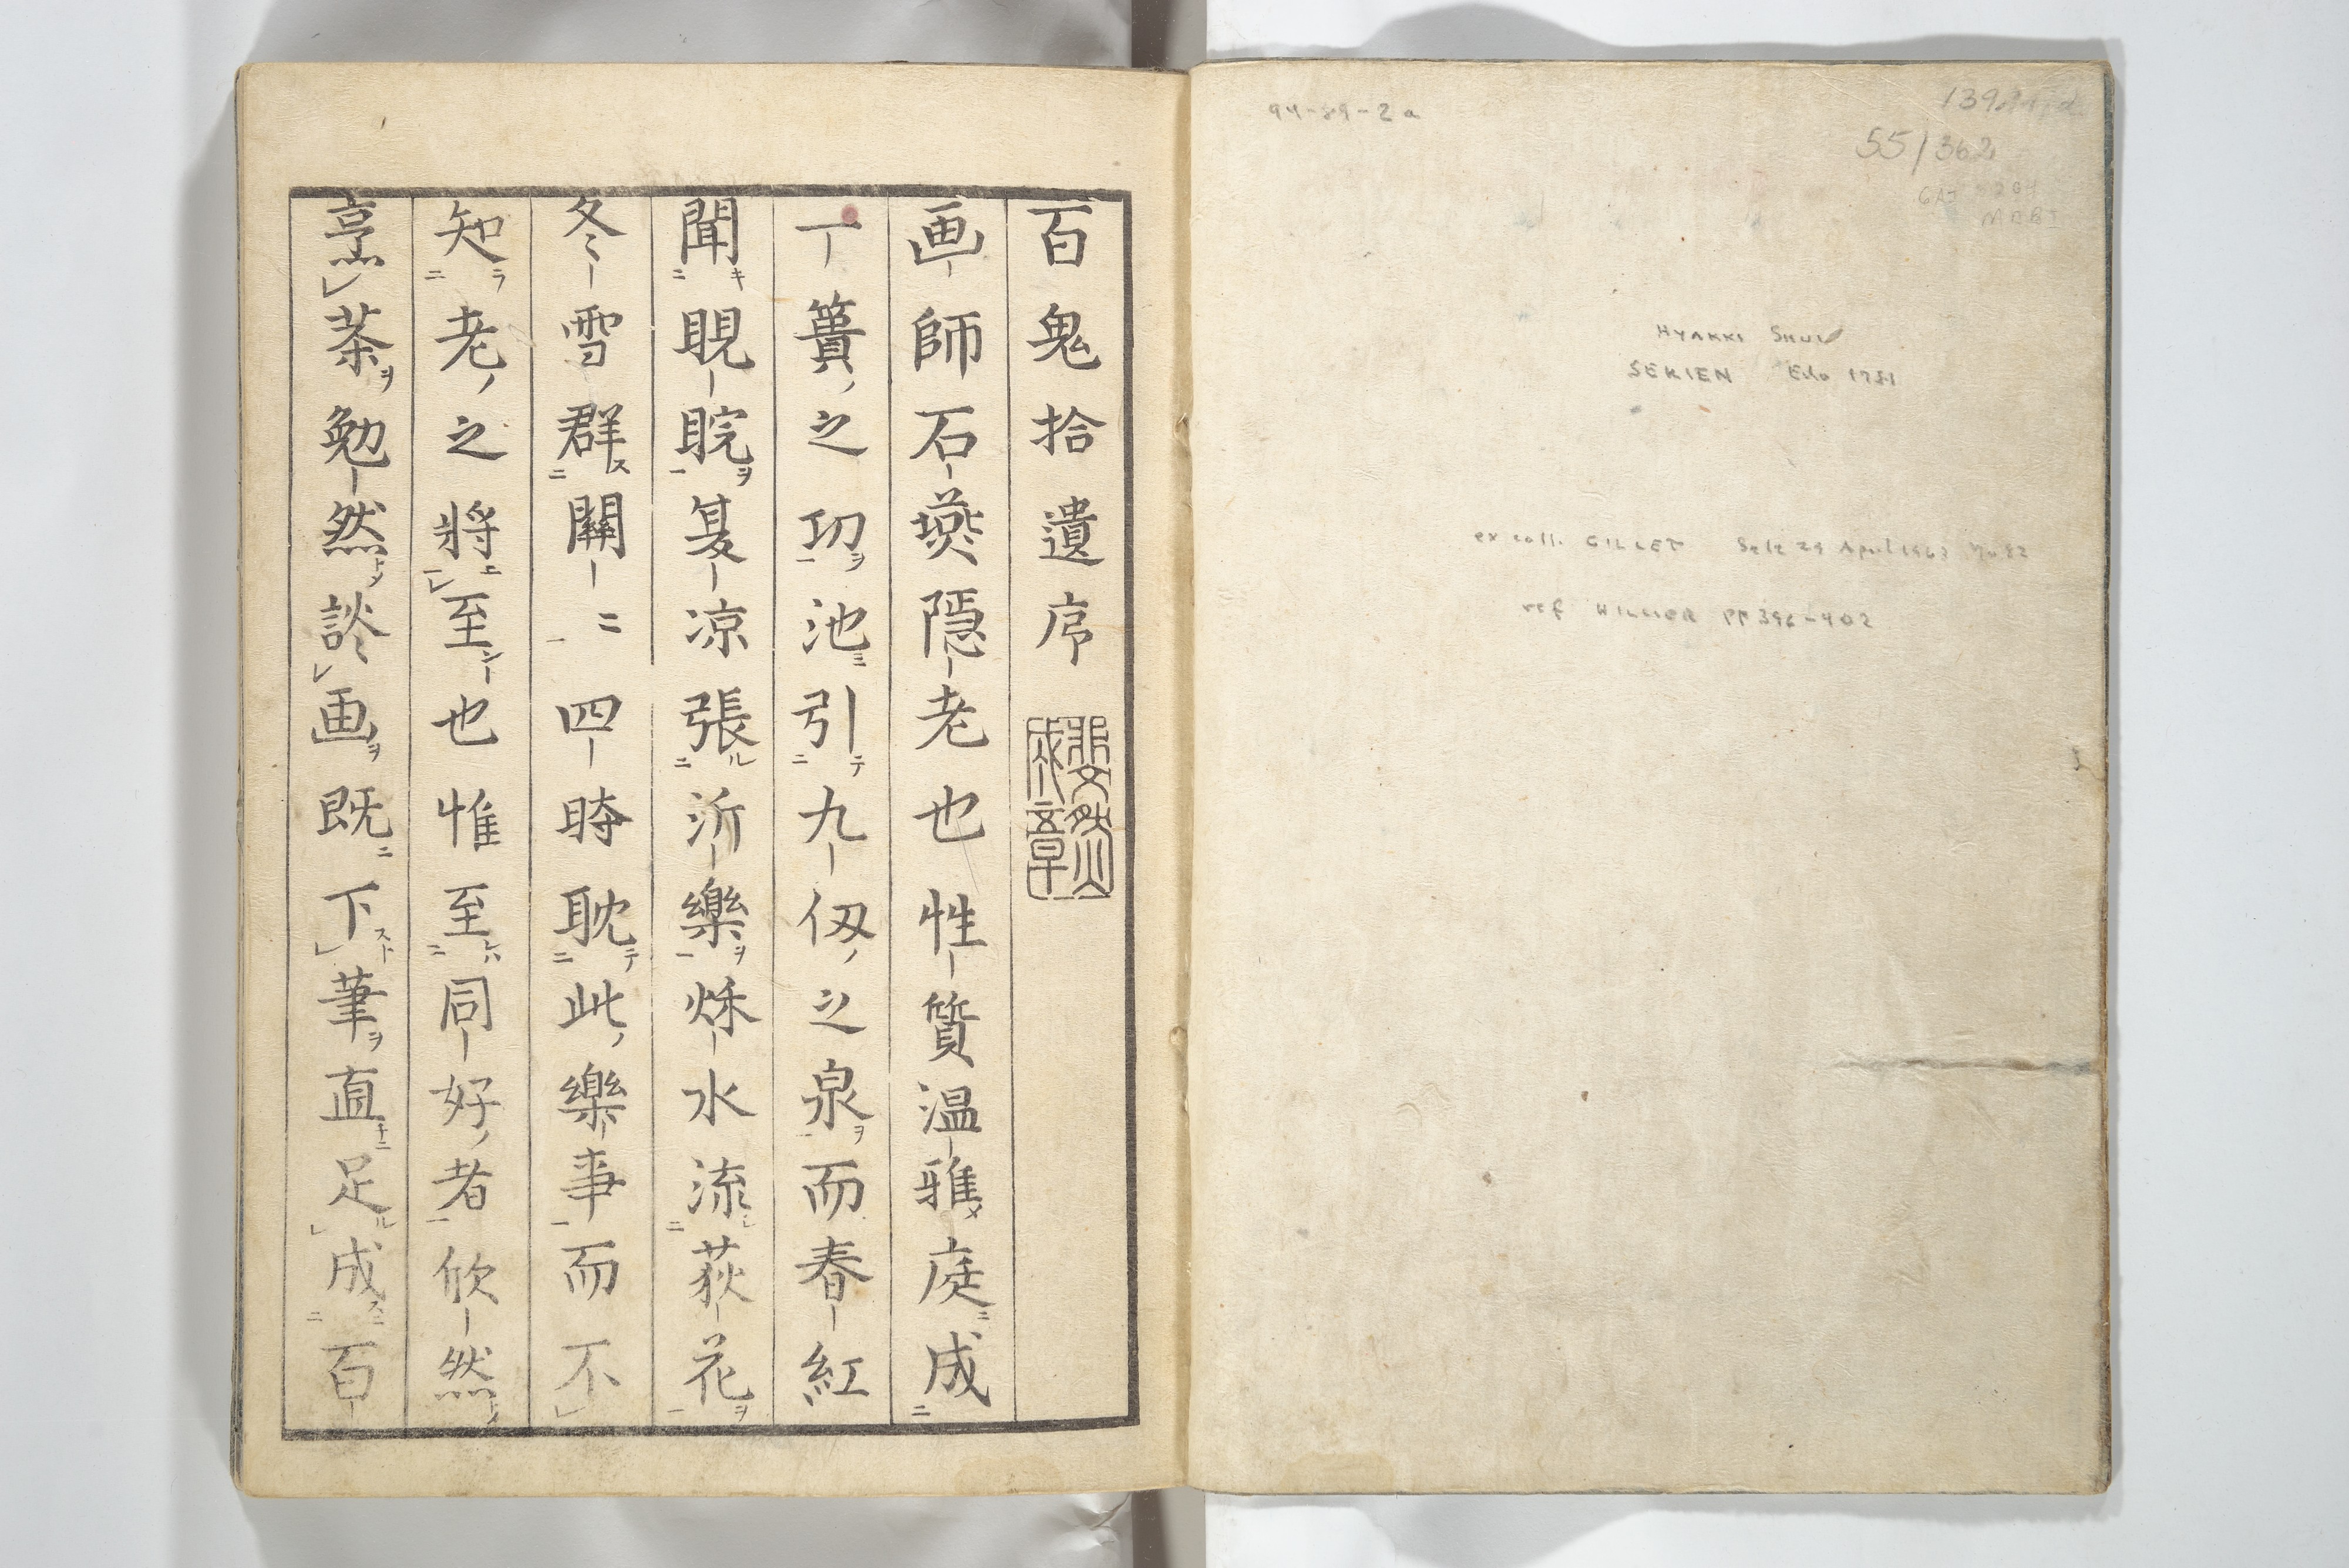 94-89-2 a
55/362
HYAKKI SHUI
SEKIEN Edo 1781
ex coll. GILLET Sale 29 April 1963 No 82
ref HILLIER PP 396-402
百鬼拾遺序
画師石燕隠老也性質温雅庭成
一簣之功池引九仭之泉而春紅
聞睍睆夏凉張泝樂秌水流荻花
冬雪群關ニ四時耽此樂事而不
知老之將至也惟至同好者欣然
烹茶勉然談画既下筆直足成百